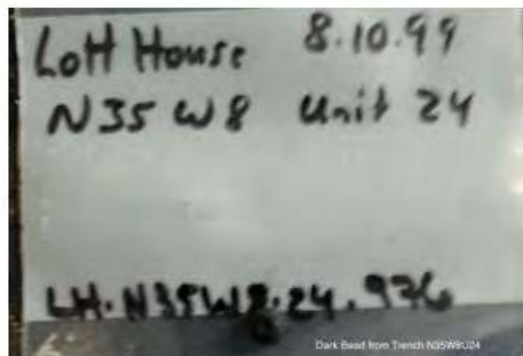 Lott House 8.10.99
N35 W8 Unit 24
LH.N35W8.24.976
Dark Bead from Trench N35W8U24